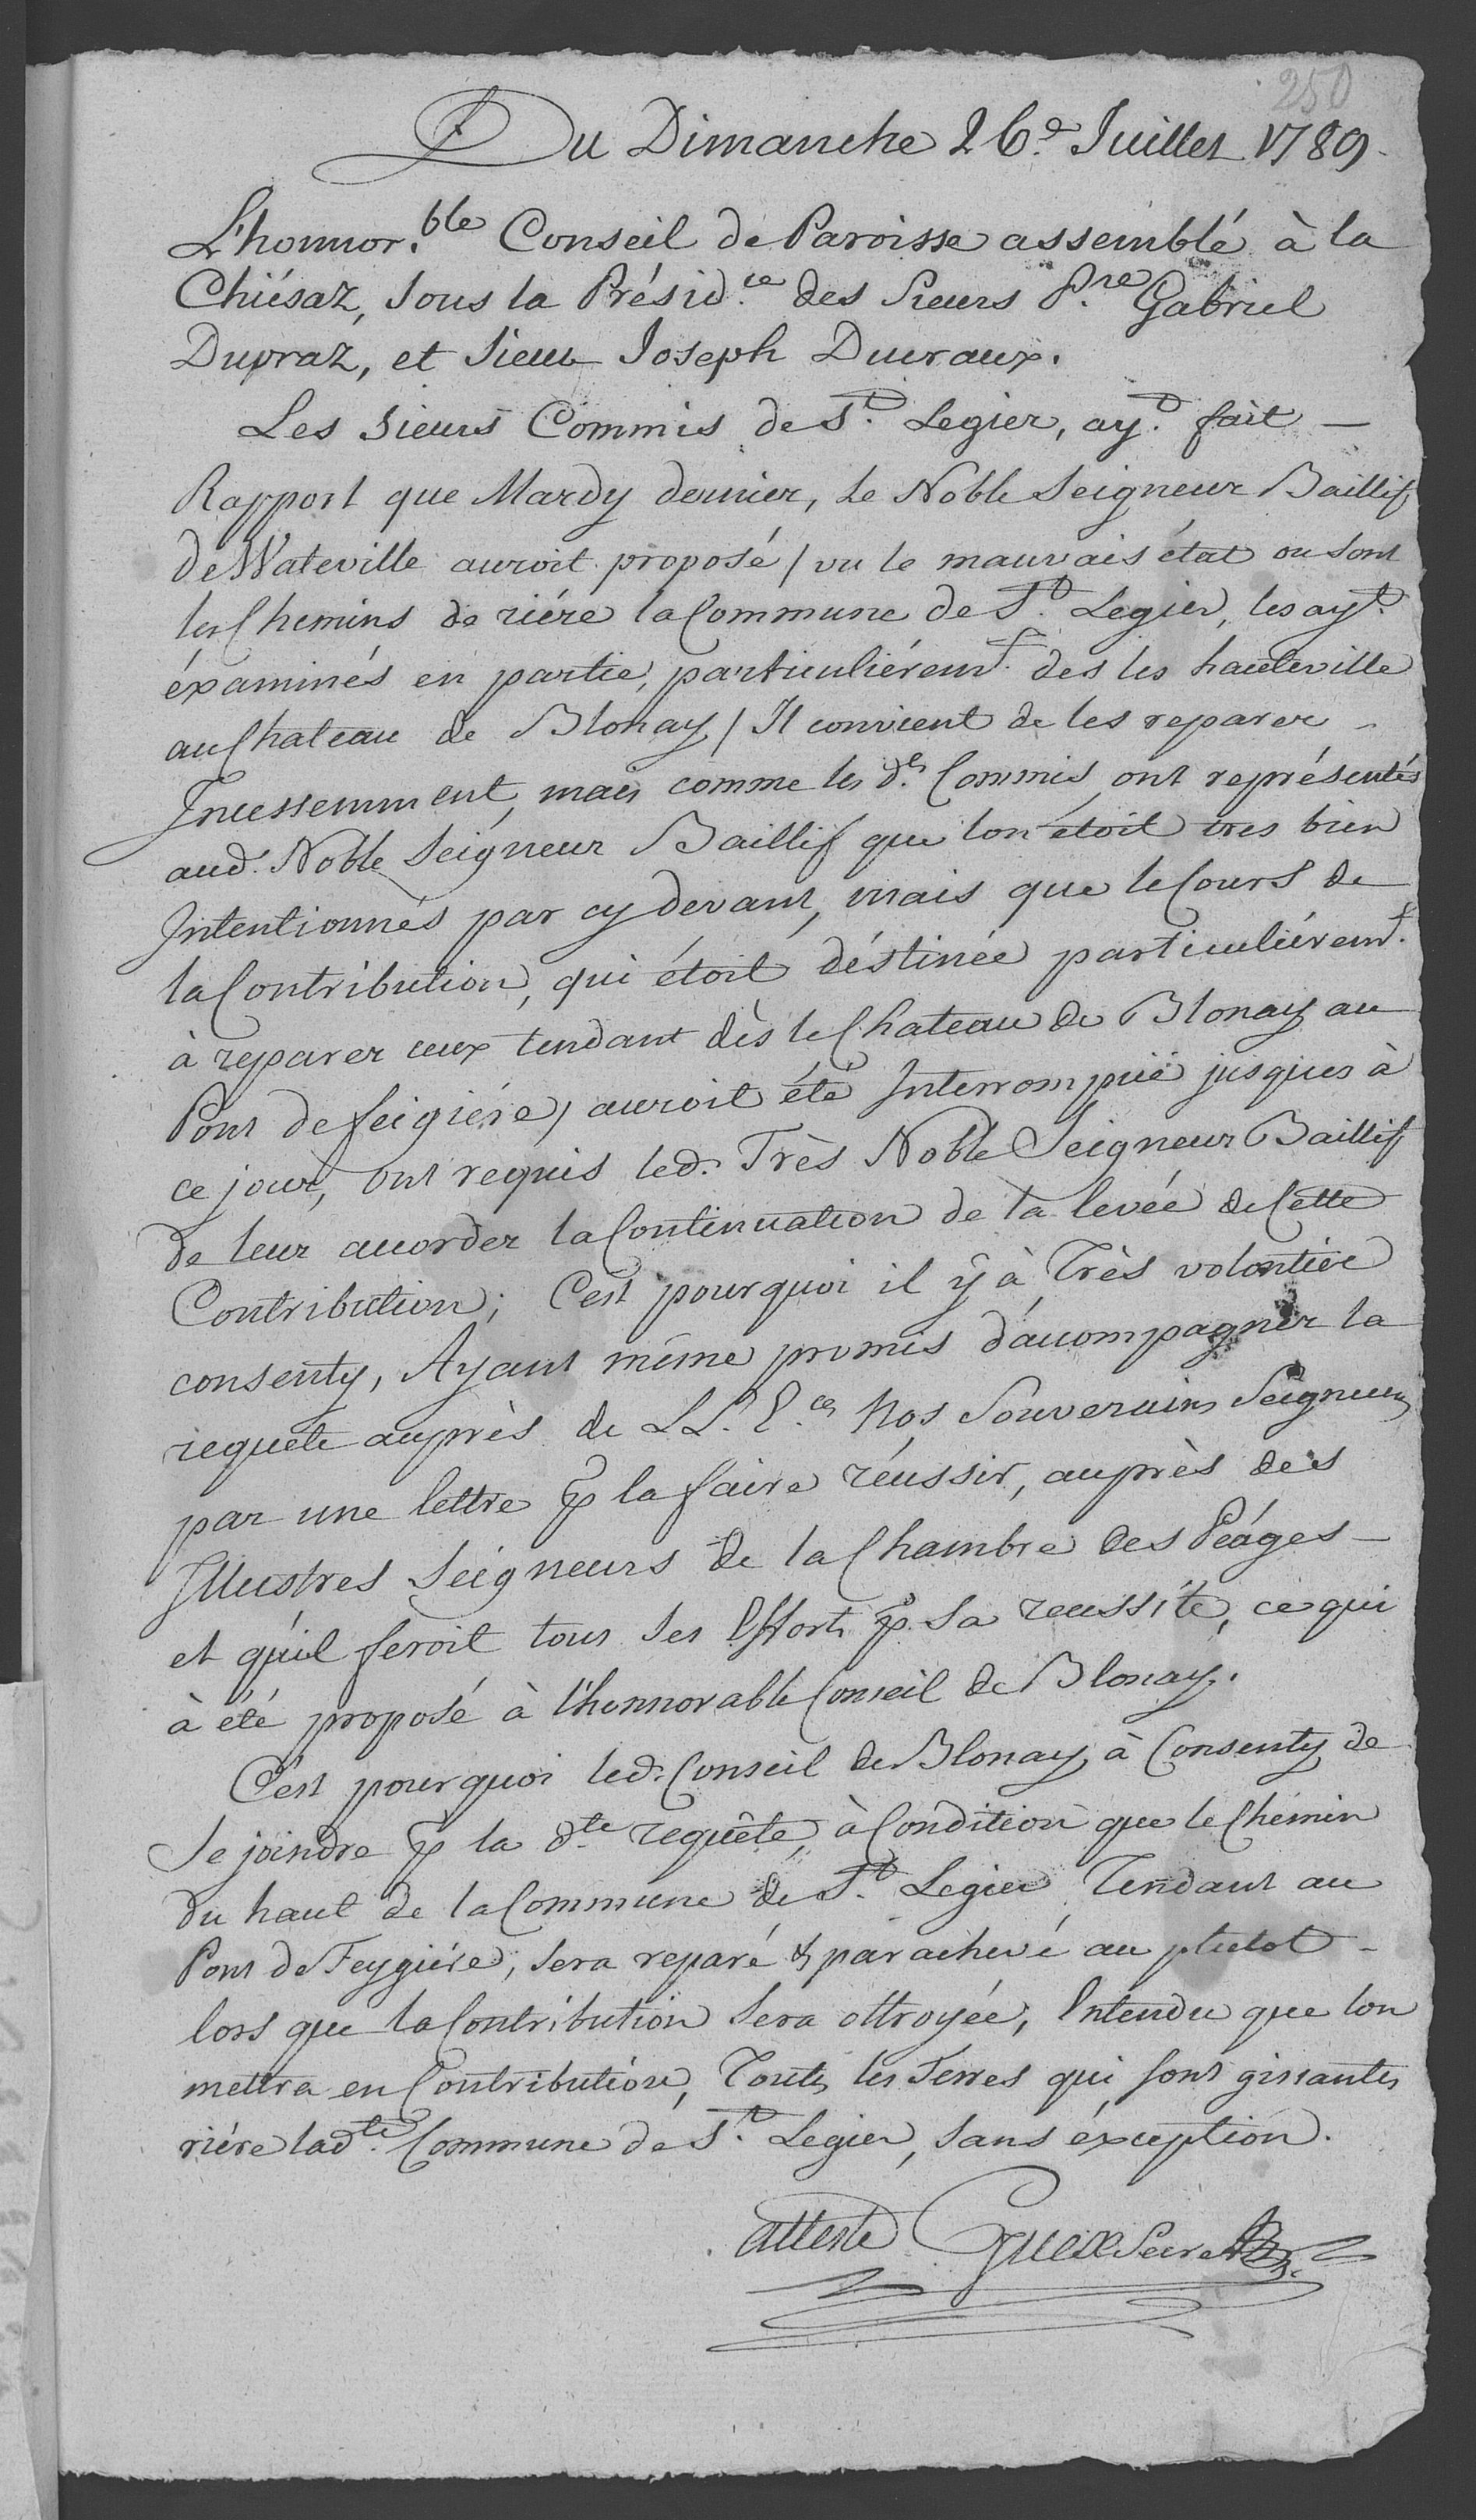 250
Du Dimanche 26.e Juillet 1789.
L'honnor.ble Conseil de Paroisse assemblé à la
Chiésaz, sous la Présid.ce des Sieurs P.re Gabriel
Dupraz, et Sieur Joseph Ducraux.
Les Sieurs Commis de St. Legier, ayt. fait —
Rapport que Mardy dernier, le Noble Seigneur Baillif
de Wateville auroit proposé / vu le mauvais état ou sont
les Chemins de riére la Commune de St. Legier, les ayt.
éxaminés en partie, particuliéremt. des les hauteville
au Chateau de Blonay / Il convient de les reparer -
Incessemment, mais comme les d.ts Commis ont représentés
aud. Noble Seigneur Baillif que lon étoit tres bien
Intentionnés par cy devant, mais que le Cours de
la Contribution, qui étoit déstinée particuliéremt.
à reparer ceux tendant dès le Chateau de Blonay au
Pont de feigiére, auroit été Interrompuë jusques à
ce jour, ont requis led. Très Noble Seigneur Baillif
de leur accorder la Continuation de la levée de Cette
Contribution; C'est pourquoi il ÿ à Très volontiér
consenty, Ayant même promis d'accompagner la
requete auprès de LL. E.ces Nos Souverains Seigneurs
par une lettre p la faire réussir, auprès des
Illustres Seigneurs de la Chambre des Péages —
et qu'il feroit tous ses Efforts p. sa reussite, ce qui
à été proposé à l'honnorable Conseil de Blonay.
C'est pourquoi led. Conseil de Blonay à Consenty de
Se joindre p la d.te requête, à Condition que le Chemin
du haut de la Commune de St. Legier Tendant au
Pont de Feygiére, sera reparé & parachevé au plutot -
lors que la Contribution sera ottroyée, Entendu que lon
mettra en Contribution, Toutes les Terres qui sont gissantes
riére lad.te Commune de St. Legier, sans éxception.
atteste Guex Secret.